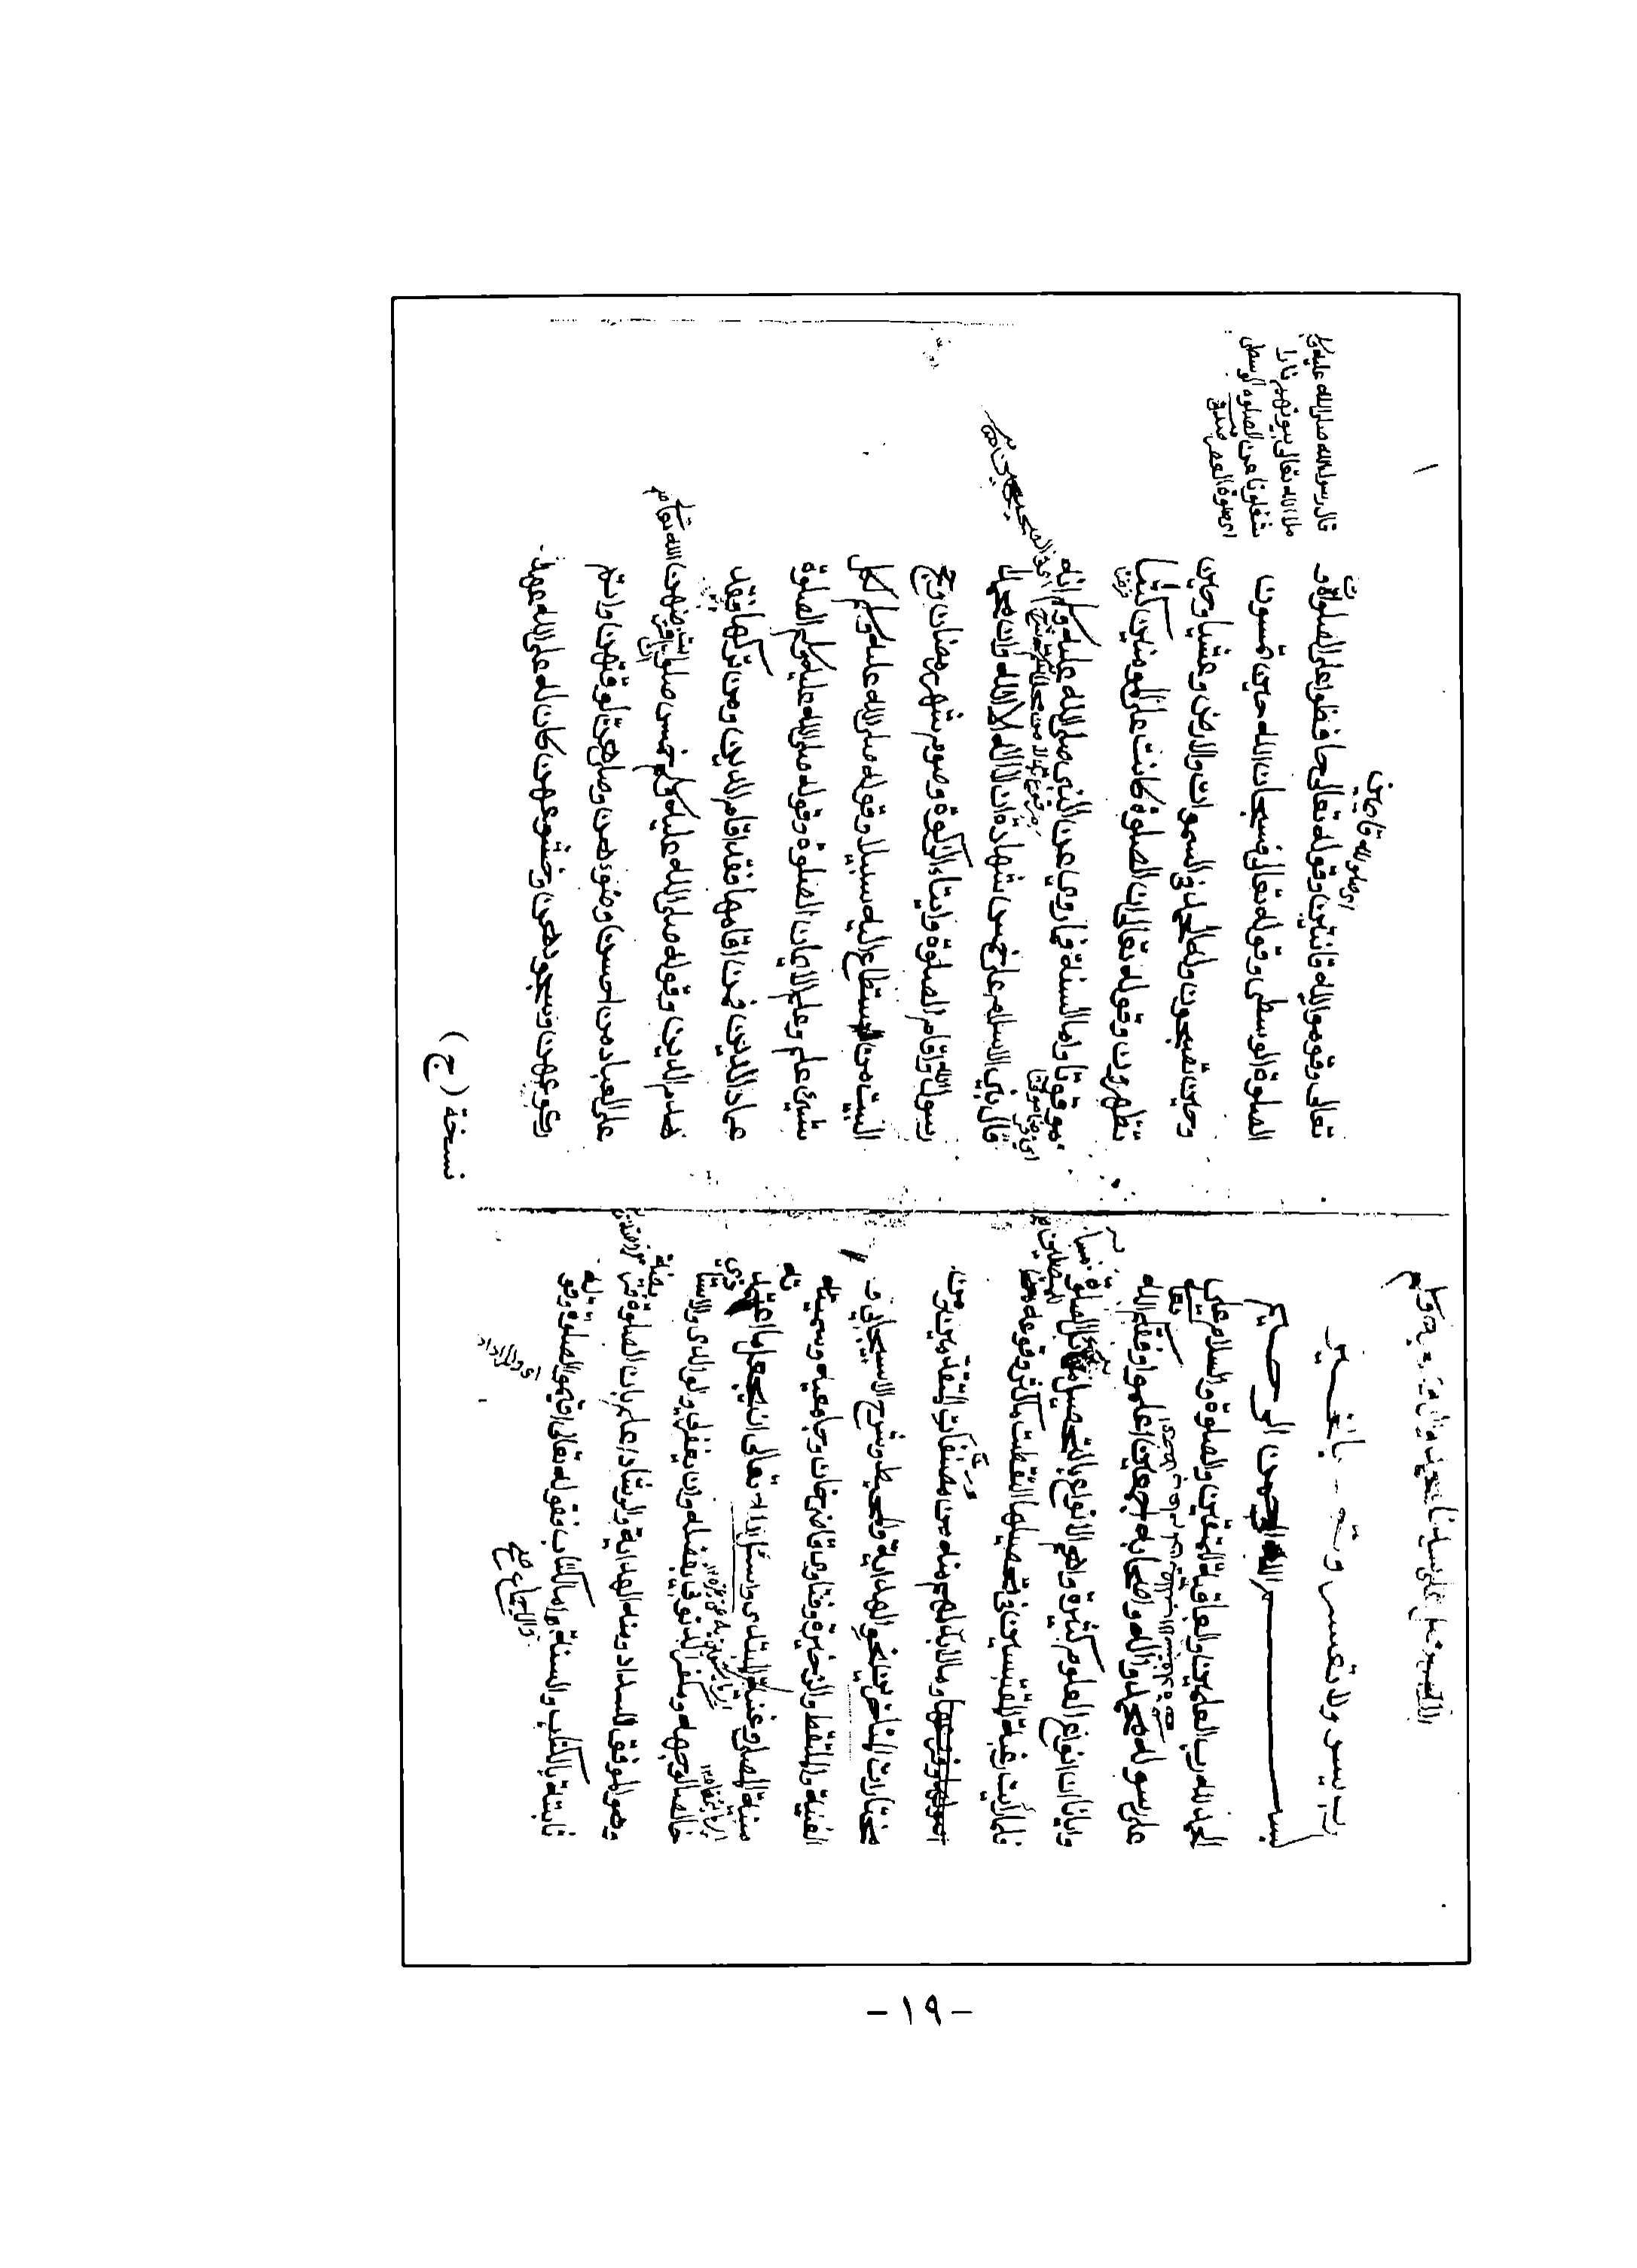 رب يسر ولا تعسر وتمم بالخير
بسم الله الرحمن الرحيم
الحمد لله رب العلمين والعاقبة للمتقين والصلوة والسلام على
على رسوله محمد واله واصحابه اجمعين اعلموا وفقكم الله تعالى
وايانا ان انواع العلوم كثيرة واهم الانواع بالتحصيل مسائل الصلوة
فلما رأيت رغبة المقتبسين في تحصيلها التقطت ما كثر وقوعه
ومالابد لهم منه من مصنفات المتقدمين
مختارات المتأخرين نحو الهداية والمحيط وشرح الاسبيجابي و
الغنية والملتقط والذخيرة وفتاوى قاضي خان وجامعيه وسميته
منية المصلي وغنية المبتدي واسئل الله تعالى ان يجعل ما اعتمدته
خالصا لوجهه ومكفرا لذنوبي بفضله وان يغفر لي ولوالدي ولاستاذي
وهو الموفق للسداد ومنه الهداية والرشاد اعلم بان الصلوة فريضة
ثابتة بالكتاب والسنة اما الكتاب فقوله تعالى اقيموا الصلوة وقوله
والاجماع صح
تعالى وقوموا لله قانتين وقوله تعالى حافظوا على الصلوات و
الصلوة الوسطى وقوله تعالى فسبحان الله حين تمسون
وحين تصبحون وله الحمد في السموات والارض وعشيا وحين
تظهرون وقوله تعالى ان الصلوة كانت على المؤمنين كتابا
موقوتا واما السنة فما روي عن النبي صلى الله عليه وسلم انه
قال بني الاسلام على خمس شهادة ان لا اله الا الله وان محمدا
رسول الله واقام الصلوة وايتاء الزكوة وصوم شهر رمضان وحج
البيت من استطاع اليه سبيلا وقوله صلى الله عليه وسلم لكل
شيئ علم وعلم الايمان الصلوة وقوله صلى الله عليه وسلم الصلوة
عماد الدين فمن اقامها فقد اقام الدين ومن تركها فقد
هدم الدين وقوله صلى الله عليه وسلم خمس صلوات افترضهن الله تعالى
على العباد من احسن وضوءهن وصلاهن لوقتهن واتم
ركوعهن وسجودهن وخشوعهن كان له على الله عهد
قال رسول الله صلى الله عليه وسلم
ملأ الله تعالى بيوتهم نارا
شغلونا عن الصلوة الوسطى
اي صلوة العصر
نسخة (ج)
- ١٩ -